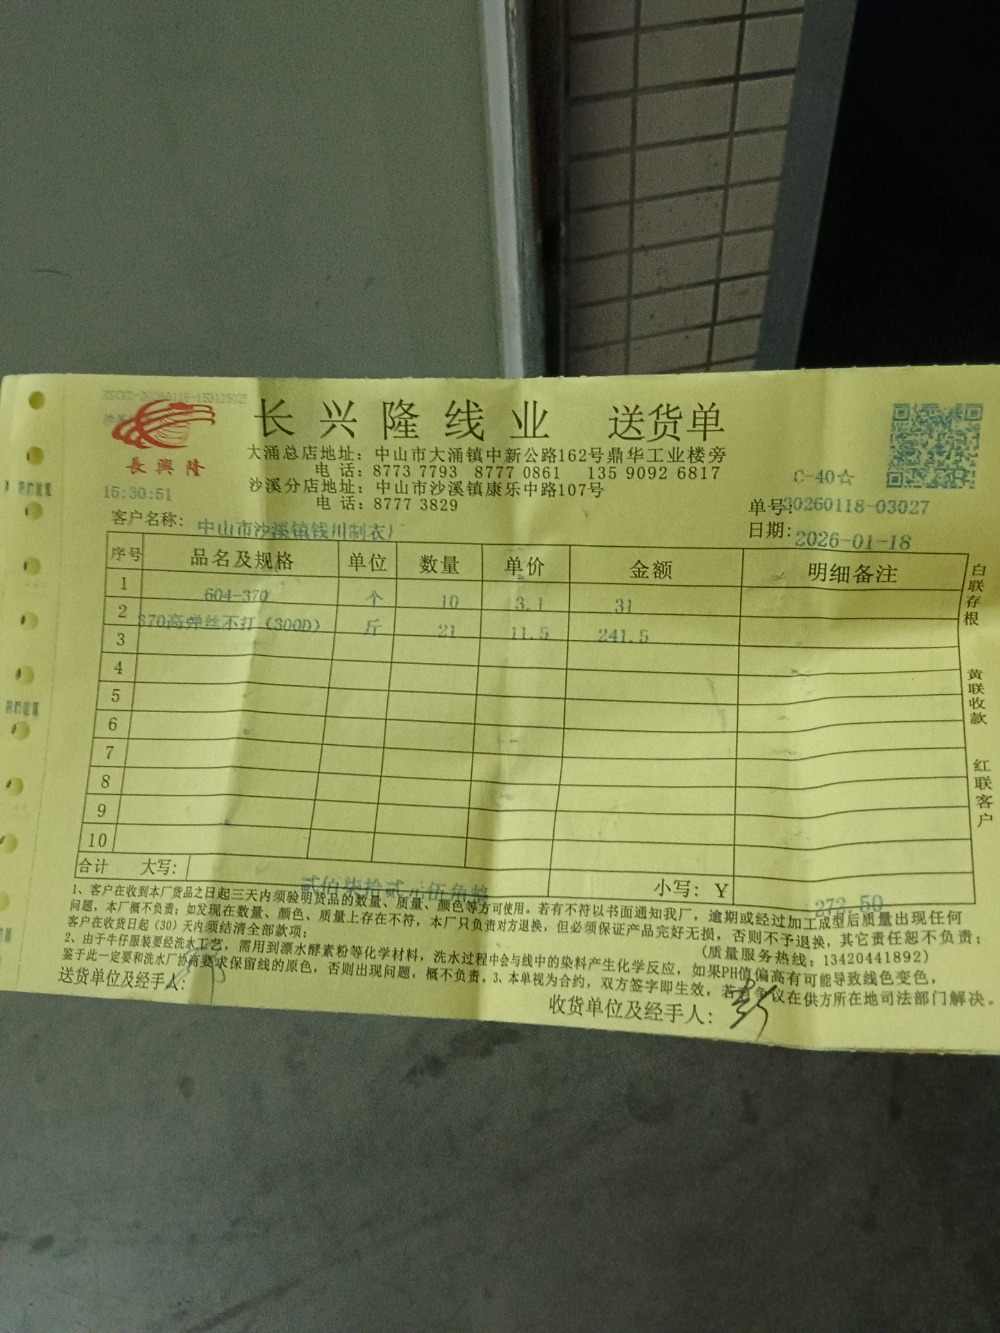 长兴隆线业 送货单
長興隆
大涌总店地址：中山市大涌镇中新公路162号鼎华工业楼旁
电 话：8773 7793 8777 0861 135 9092 6817
沙溪分店地址：中山市沙溪镇康乐中路107号
电 话：8777 3829
C-40☆
15:30:51
单号:20260118-03027
客户名称：中山市沙溪镇钱川制衣厂
日期：2026-01-18
序号 品名及规格 单位 数量 单价 金额 明细备注
1 604-370 个 10 3.1 31
2 370高弹丝不打（300D） 斤 21 11.5 241.5
3
4
5
6
7
8
9
10
合计 大写：贰佰柒拾贰元伍角整 小写：Y 272.50
白联存根
黄联收款
红联客户
1、客户在收到本厂货品之日起三天内须验明货品的数量、质量、颜色等方可使用。若有不符以书面通知我厂，逾期或经过加工成型后质量出现任何
问题，本厂概不负责；如发现在数量、颜色、质量上存在不符，本厂只负责对方退换，但必须保证产品完好无损，否则不予退换，其它责任恕不负责；
客户在收货日起（30）天内须结清全部款项；
(质量服务热线：13420441892)
2、由于牛仔服装要经洗水工艺，需用到漂水酵素粉等化学材料，洗水过程中会与线中的染料产生化学反应，如果PH值偏高有可能导致线色变色，
鉴于此一定要和洗水厂协商要求保留线的原色，否则出现问题，概不负责。3、本单视为合约，双方签字即生效，若有争议在供方所在地司法部门解决。
送货单位及经手人：
收货单位及经手人：